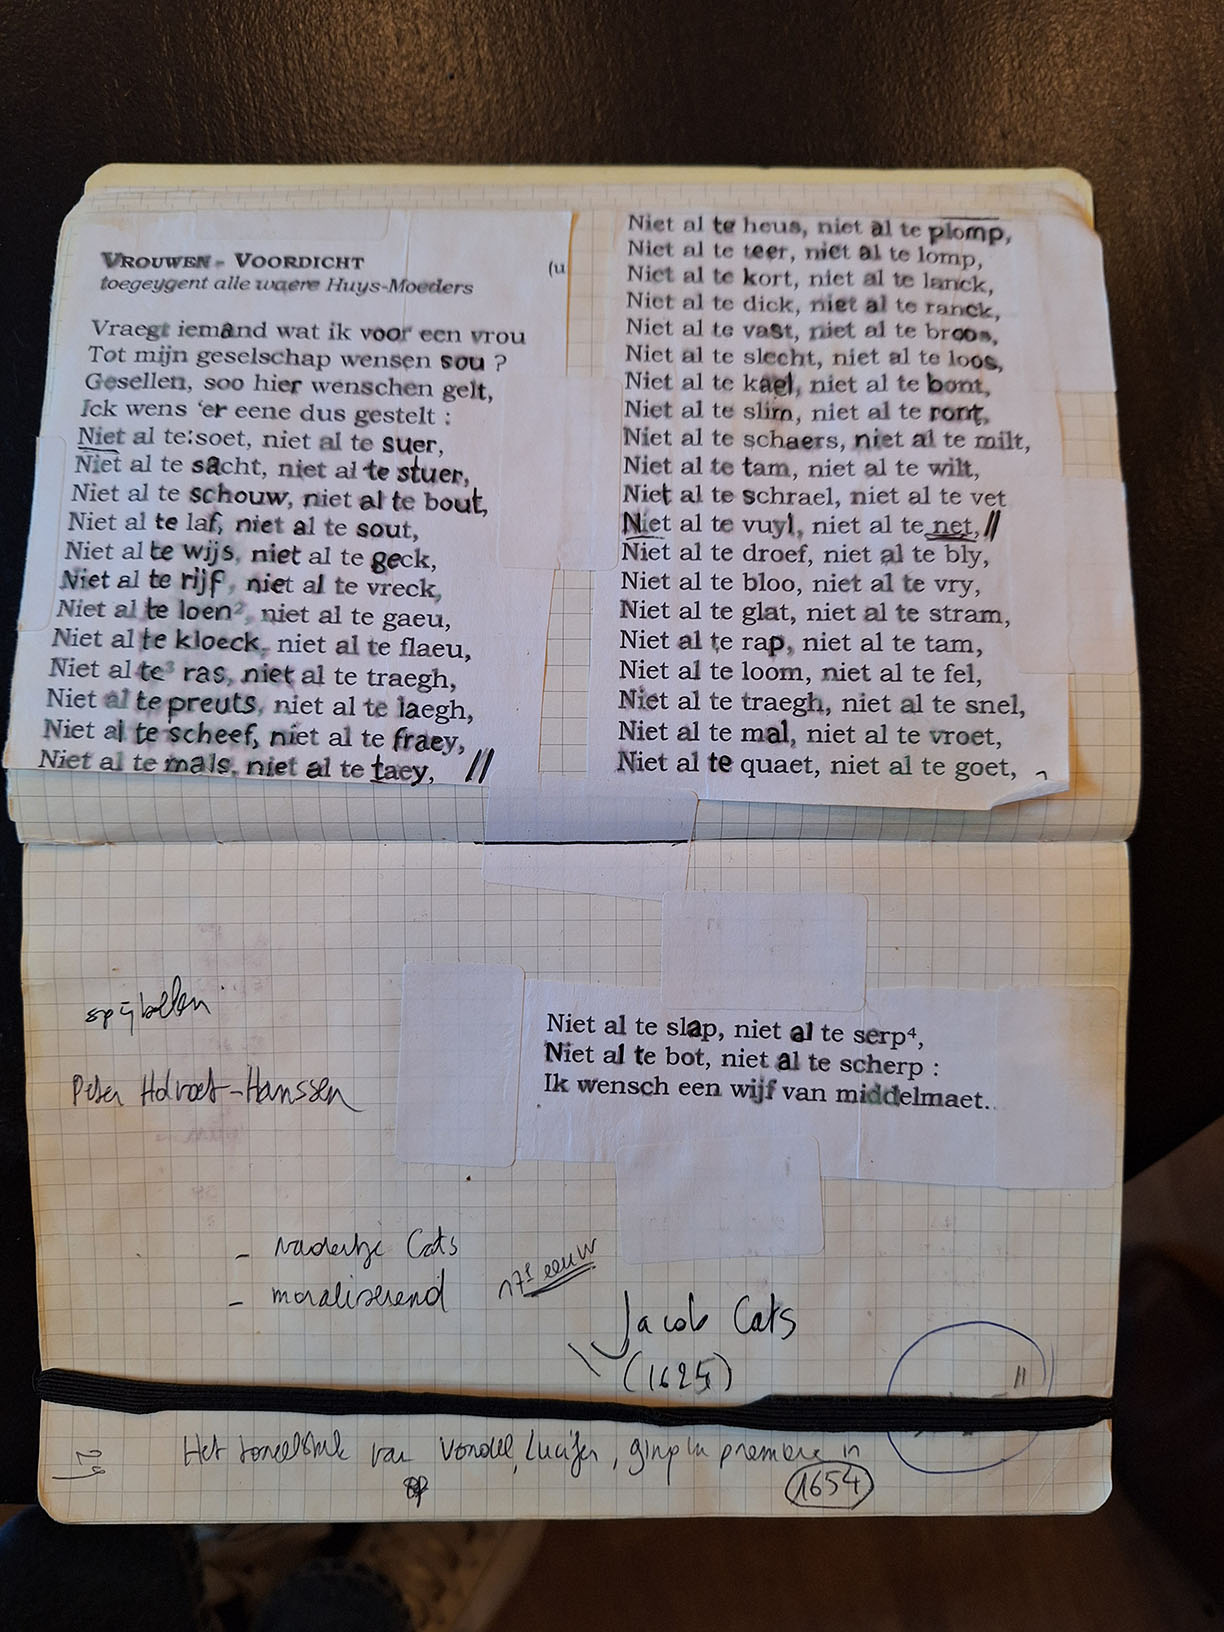 VROUWEN - VOORDICHT
(u
toegeygent alle waere Huys-Moeders
Vraegt iemand wat ik voor een vrou
Tot mijn geselschap wensen sou ?
Gesellen, soo hier wenschen gelt,
Ick wens 'er eene dus gestelt :
Niet al te soet, niet al te suer,
Niet al te sacht, niet al te stuer,
Niet al te schouw, niet al te bout,
Niet al te laf, niet al te sout,
Niet al te wijs, niet al te geck,
Niet al te rijf, niet al te vreck,
Niet al te loen², niet al te gaeu,
Niet al te kloeck, niet al te flaeu,
Niet al te³ ras, niet al te traegh,
Niet al te preuts, niet al te laegh,
Niet al te scheef, niet al te fraey,
Niet al te mals, niet al te taey, //
Niet al te heus, niet al te plomp,
Niet al te teer, niet al te lomp,
Niet al te kort, niet al te lanck,
Niet al te dick, niet al te ranck,
Niet al te vast, niet al te broos,
Niet al te slecht, niet al te loos,
Niet al te kael, niet al te bont,
Niet al te slim, niet al te ront,
Niet al te schaers, niet al te milt,
Niet al te tam, niet al te wilt,
Niet al te schrael, niet al te vet
Niet al te vuyl, niet al te net, //
Niet al te droef, niet al te bly,
Niet al te bloo, niet al te vry,
Niet al te glat, niet al te stram,
Niet al te rap, niet al te tam,
Niet al te loom, niet al te fel,
Niet al te traegh, niet al te snel,
Niet al te mal, niet al te vroet,
Niet al te quaet, niet al te goet,
Niet al te slap, niet al te serp⁴,
Niet al te bot, niet al te scherp :
Ik wensch een wijf van middelmaet.
spijbelen
Peter Holvoet-Hanssen
- vadertje Cats
- moraliserend
17e eeuw
Jacob Cats
(1625)
Het toneelstuk van Vondel, Lucifer, ging in première in
1654